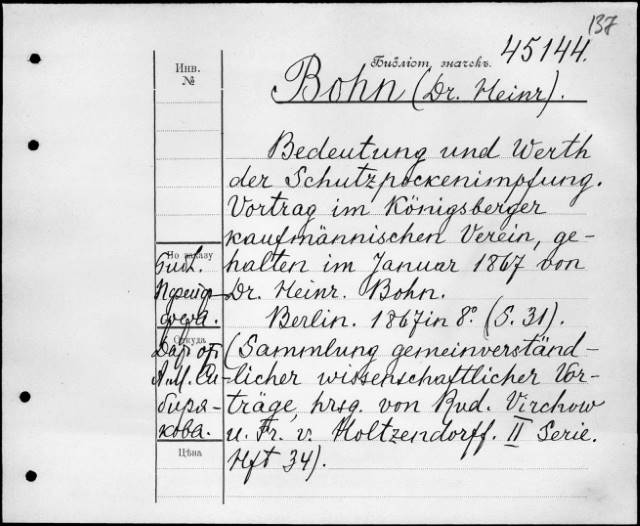 137
45144.
Инв.
№
Библіот. значекъ.
Bohn (Dr. Heinr).
Bedeutung und Werth
der Schutzpockenimpfung.
Vortrag im Königsberger
kaufmännischen Verein, ge-
halten im Januar 1867 von
Dr. Heinr. Bohn.
Berlin. 1867 in 8º. (S. 31).
(Sammlung gemeinverständ-
licher wissenschaftlicher Vor-
träge, hrsg. von Rud. Virchow
u. Fr. v. Holtzendorff. II Serie.
Hft 34).
По заказу
Библ.
Откуда
Дар от
А. М. Си-
биря-
кова.
Цѣна